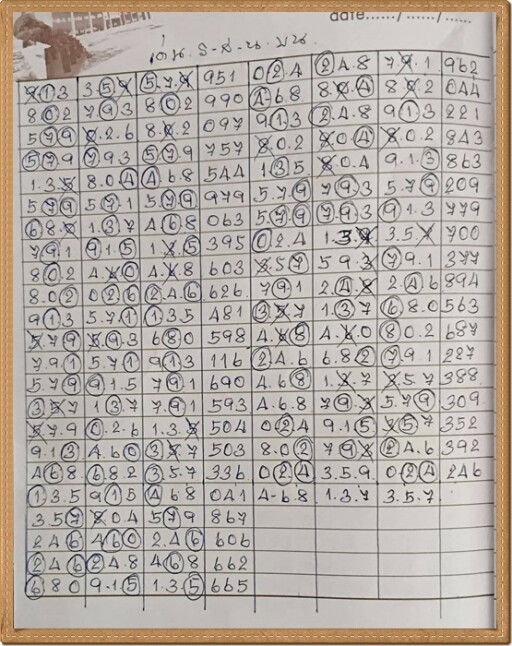 date....../....../......
เด่น. ร-ส-น. บน.
913 359 579 951 024 248 791 962
802 793 802 990 468 804 802 044
579 026 802 097 913 248 913 221
579 793 579 757 802 804 802 843
135 804 468 544 135 804 913 863
579 571 579 979 579 793 579 209
680 137 468 063 579 793 913 779
791 915 135 395 024 139 357 700
802 460 468 603 357 593 791 377
802 026 246 626 791 248 246 894
913 571 135 481 357 137 680 563
579 593 680 598 468 460 802 687
791 571 913 116 246 682 791 227
579 915 791 690 468 137 357 388
357 137 791 593 468 793 579 309
579 026 135 504 024 915 357 352
913 460 357 503 802 793 246 392
468 682 357 336 024 359 024 246
135 915 468 041 468 137 357
357 804 579 867
246 460 246 606
246 248 468 662
680 915 135 665